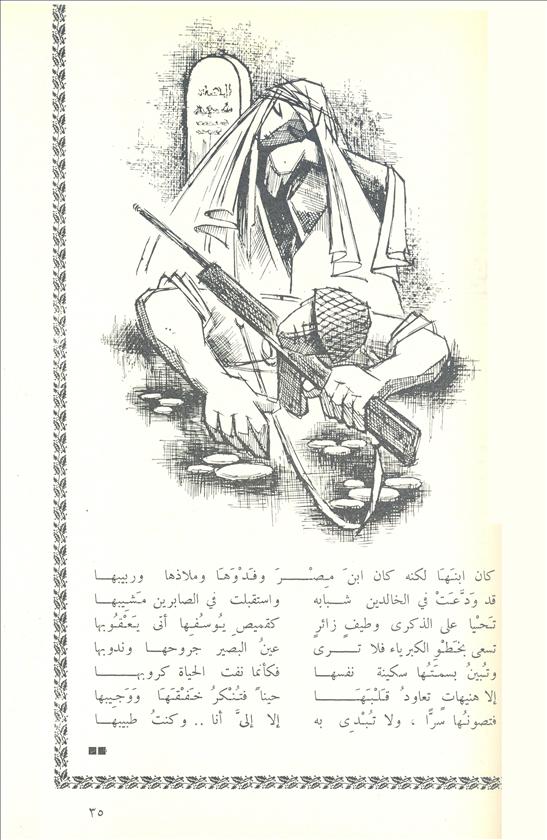 كان ابنَهَا لكنه كان ابنَ مِصْرَ وفَدْوَهَا وملاذها وربيبها
قد وَدَّعَتْ في الخالدين شبابه واستقبلت في الصابرين مَشيبها
تَحْيا على الذكرى وطيفٍ زائرٍ كقميصِ يُوسُفِها أتى يَعْقُوبها
تسعى بخَطْوِ الكبرياء فلا ترى عينُ البصير جروحها وندوبها
وتُبينُ بسمَتُها سكينة نفسها فكأنما نفت الحياة كروبها
إلا هنيهاتٍ تعاودُ قَلْبَهَا حيناً فتُنْكرُ خَفْقَهَا وَوَجيبها
فتصونُها سرًّا ، ولا تُبْدِى به إلا إلىَّ أنا .. وكنتُ طبيبها
٣٥